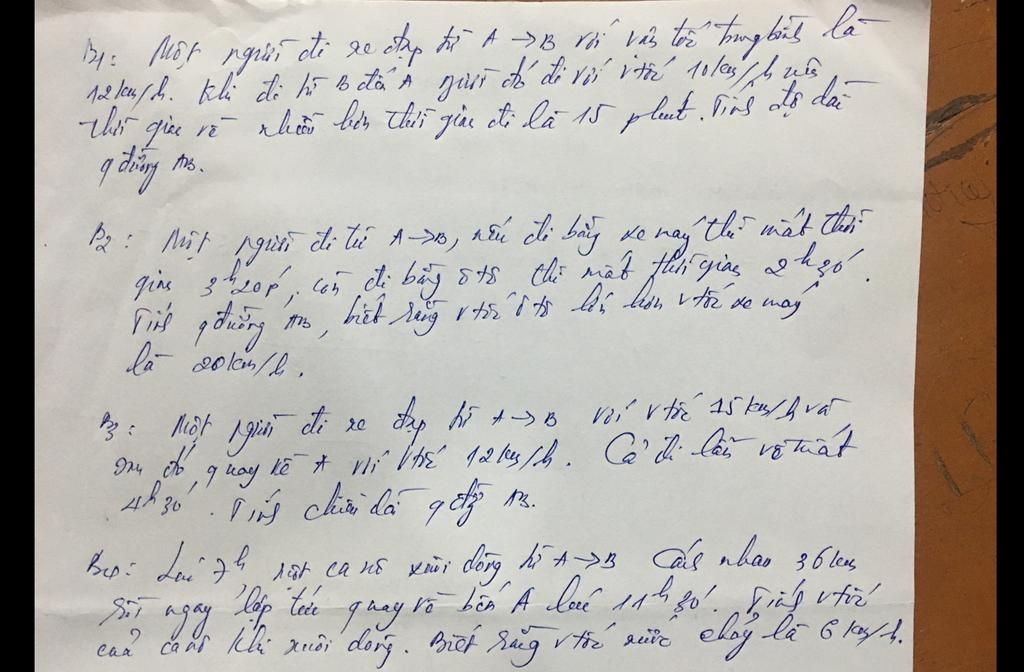 B1: Một người đi xe đạp từ A → B với vân tốc trung bình là
12km/h. Khi đi từ B đến A người đó đi với vtốc 10km/h nên
thời gian về nhiều hơn thời gian đi là 15 phút. Tính độ dài
qđường AB.
B2: Một người đi từ A → B, nếu đi bằng xe máy thì mất thời
gian 3h20p, còn đi bằng ôtô thì mất thời gian 2h30'.
Tính qđường AB, biết rằng vtốc ôtô lớn hơn vtốc xe máy
là 20km/h.
B3: Một người đi xe đạp từ A → B với vtốc 15km/h và
sau đó quay về A với vtốc 12km/h. Cả đi lẫn về mất
4h30'. Tính chiều dài qđg AB.
B4: Lúc 7h, một ca nô xuôi dòng từ A → B cách nhau 36km
rồi ngay lập tức quay về bến A lúc 11h30'. Tính vtốc
của canô khi xuôi dòng. Biết rằng vtốc nước chảy là 6km/h.